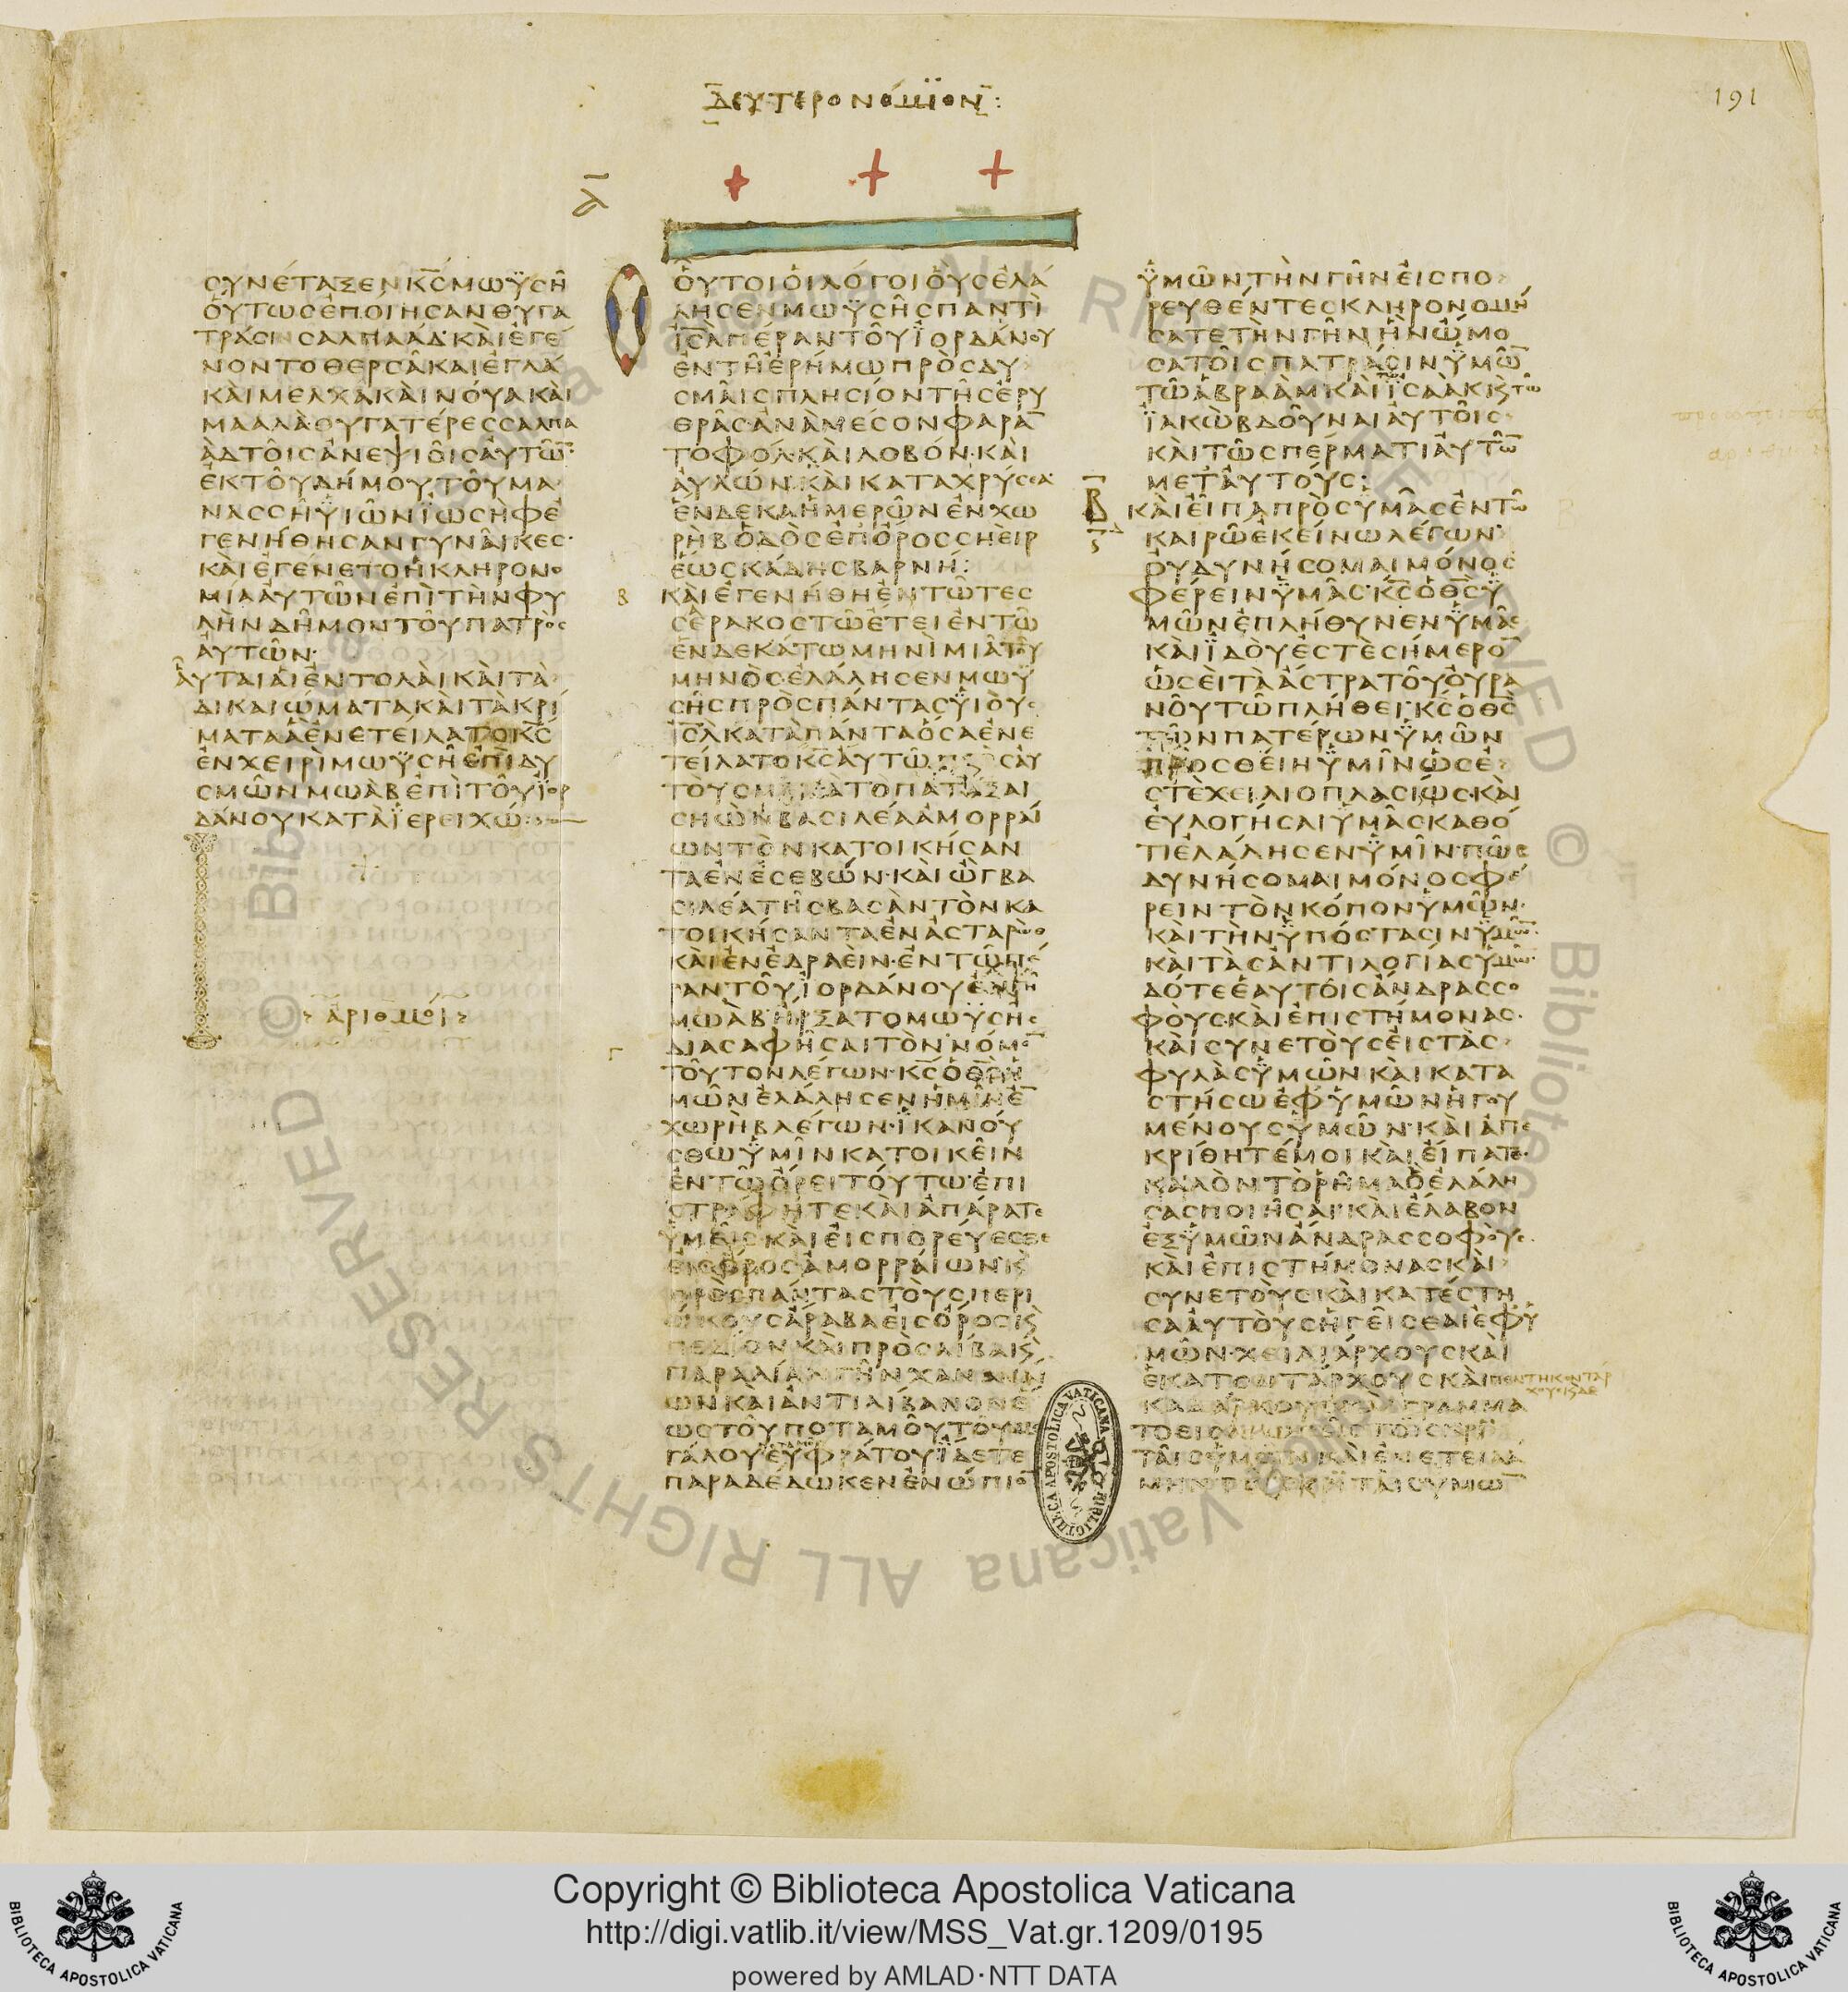 ΔΕΥΤΕΡΟΝΟΜΙΟΝ:
191
Δ
ϹΥΝΕΤΑΞΕΝ Κ̅Ϲ̅ ΜΩΥϹΗ
ΟΥΤΩϹ ΕΠΟΙΗϹΑΝ ΘΥΓΑ
ΤΡΑϹΙΝ ϹΑΛΠΑΑΔ ΚΑΙ ΕΓΕ
ΝΟΝΤΟ ΘΕΡϹΑ ΚΑΙ ΕΓΛΑ
ΚΑΙ ΜΕΛΧΑ ΚΑΙ ΝΟΥΑ ΚΑΙ
ΜΑΑΛΑ ΘΥΓΑΤΕΡΕϹ ϹΑΛΠΑ
ΑΔ ΤΟΙϹ ΑΝΕΨΙΟΙϹ ΑΥΤΩ̅
ΕΚ ΤΟΥ ΔΗΜΟΥ ΤΟΥ ΜΑ
ΝΑϹϹΗ ΥΙΩΝ ΙΩϹΗΦ Ε
ΓΕΝΗΘΗϹΑΝ ΓΥΝΑΙΚΕϹ
ΚΑΙ ΕΓΕΝΕΤΟ Η ΚΛΗΡΟΝΟ
ΜΙΑ ΑΥΤΩΝ ΕΠΙ ΤΗΝ ΦΥ
ΛΗΝ ΔΗΜΟΝ ΤΟΥ ΠΑΤΡΟϹ
ΑΥΤΩΝ
ΑΥΤΑΙ ΑΙ ΕΝΤΟΛΑΙ ΚΑΙ ΤΑ
ΔΙΚΑΙΩΜΑΤΑ ΚΑΙ ΤΑ ΚΡΙ
ΜΑΤΑ Α ΕΝΕΤΕΙΛΑΤΟ Κ̅Ϲ̅
ΕΝ ΧΕΙΡΙ ΜΩΥϹΗ ΕΠΙ ΔΥ
ϹΜΩΝ ΜΩΑΒ ΕΠΙ ΤΟΥ ΙΟΡ
ΔΑΝΟΥ ΚΑΤΑ ΙΕΡΕΙΧΩ
ΑΡΙΘΜΟΙ
ΟΥΤΟΙ ΟΙ ΛΟΓΟΙ ΟΥϹ ΕΛΑ
ΛΗϹΕΝ ΜΩΥϹΗϹ ΠΑΝΤΙ
Ι̅Ϲ̅Λ̅ ΠΕΡΑΝ ΤΟΥ ΙΟΡΔΑΝΟΥ
ΕΝ ΤΗ ΕΡΗΜΩ ΠΡΟϹ ΔΥ
ϹΜΑΙϹ ΠΛΗϹΙΟΝ ΤΗϹ ΕΡΥ
ΘΡΑϹ ΑΝΑ ΜΕϹΟΝ ΦΑΡΑ̅
ΤΟΦΟΛ ΚΑΙ ΛΟΒΟΝ ΚΑΙ
ΑΥΛΩΝ ΚΑΙ ΚΑΤΑΧΡΥϹΕΑ
ΕΝΔΕΚΑ ΗΜΕΡΩΝ ΕΝ ΧΩ
ΡΗΒ ΟΔΟϹ ΕΠ ΟΡΟϹ ϹΗΕΙΡ
ΕΩϹ ΚΑΔΗϹ ΒΑΡΝΗ
Β ΚΑΙ ΕΓΕΝΗΘΗ ΕΝ ΤΩ ΤΕϹ
ϹΕΡΑΚΟϹΤΩ ΕΤΕΙ ΕΝ ΤΩ
ΕΝΔΕΚΑΤΩ ΜΗΝΙ ΜΙΑ ΤΟΥ
ΜΗΝΟϹ ΕΛΑΛΗϹΕΝ ΜΩΥ
ϹΗϹ ΠΡΟϹ ΠΑΝΤΑϹ ΥΙΟΥϹ
Ι̅Ϲ̅Λ̅ ΚΑΤΑ ΠΑΝΤΑ ΟϹΑ ΕΝΕ
ΤΕΙΛΑΤΟ Κ̅Ϲ̅ ΑΥΤΩ ΠΡΟϹ ΑΥ
ΤΟΥϹ ΜΕΤΑ ΤΟ ΠΑΤΑΞΑΙ
ϹΗΩΝ ΒΑϹΙΛΕΑ ΑΜΟΡΡΑΙ
ΩΝ ΤΟΝ ΚΑΤΟΙΚΗϹΑΝ
ΤΑ ΕΝ ΕϹΕΒΩΝ ΚΑΙ ΩΓ ΒΑ
ϹΙΛΕΑ ΤΗϹ ΒΑϹΑΝ ΤΟΝ ΚΑ
ΤΟΙΚΗϹΑΝΤΑ ΕΝ ΑϹΤΑΡΩΘ
ΚΑΙ ΕΝ ΕΔΡΑΕΙΝ ΕΝ ΤΩ ΠΕ
ΡΑΝ ΤΟΥ ΙΟΡΔΑΝΟΥ ΕΝ ΓΗ
ΜΩΑΒ ΗΡΞΑΤΟ ΜΩΥϹΗϹ
Γ ΔΙΑϹΑΦΗϹΑΙ ΤΟΝ ΝΟΜΟ̅
ΤΟΥΤΟΝ ΛΕΓΩΝ Κ̅Ϲ̅ Ο Θ̅Ϲ̅ Η
ΜΩΝ ΕΛΑΛΗϹΕΝ ΗΜΙΝ Ε̅
ΧΩΡΗΒ ΛΕΓΩΝ ΙΚΑΝΟΥ
ϹΘΩ ΥΜΙΝ ΚΑΤΟΙΚΕΙΝ
ΕΝ ΤΩ ΟΡΕΙ ΤΟΥΤΩ ΕΠΙ
ϹΤΡΑΦΗΤΕ ΚΑΙ ΑΠΑΡΑΤΕ
ΥΜΕΙϹ ΚΑΙ ΕΙϹΠΟΡΕΥΕϹΘΕ
ΕΙϹ ΟΡΟϹ ΑΜΟΡΡΑΙΩΝ Κ
ΠΡΟϹ ΠΑΝΤΑϹ ΤΟΥϹ ΠΕΡΙ
ΟΙΚΟΥϹ ΑΡΑΒΑ ΕΙϹ ΟΡΟϹ Κ
ΠΕΔΙΟΝ ΚΑΙ ΠΡΟϹ ΛΙΒΑ Κ
ΠΑΡΑΛΙΑΝ ΓΗΝ ΧΑΝΑΝΑΙ
ΩΝ ΚΑΙ ΑΝΤΙΛΙΒΑΝΟΝ Ε
ΩϹ ΤΟΥ ΠΟΤΑΜΟΥ ΤΟΥ ΜΕ
ΓΑΛΟΥ ΕΥΦΡΑΤΟΥ ΙΔΕΤΕ
ΠΑΡΑΔΕΔΩΚΕΝ ΕΝΩΠΙΟ̅
ΥΜΩΝ ΤΗΝ ΓΗΝ ΕΙϹΠΟ
ΡΕΥΘΕΝΤΕϹ ΚΛΗΡΟΝΟΜΗ
ϹΑΤΕ ΤΗΝ ΓΗΝ ΗΝ ΩΜΟ
ϹΑ ΤΟΙϹ ΠΑΤΡΑϹΙΝ ΥΜΩ̅
ΤΩ ΑΒΡΑΑΜ ΚΑΙ ΙϹΑΑΚ Κ ΤΩ
ΙΑΚΩΒ ΔΟΥΝΑΙ ΑΥΤΟΙϹ
ΚΑΙ ΤΩ ϹΠΕΡΜΑΤΙ ΑΥΤΩ̅
ΜΕΤ ΑΥΤΟΥϹ
Β ΚΑΙ ΕΙΠΑ ΠΡΟϹ ΥΜΑϹ ΕΝ ΤΩ
ΚΑΙΡΩ ΕΚΕΙΝΩ ΛΕΓΩΝ
ΟΥ ΔΥΝΗϹΟΜΑΙ ΜΟΝΟϹ
ΦΕΡΕΙΝ ΥΜΑϹ Κ̅Ϲ̅ Ο Θ̅Ϲ̅ Υ
ΜΩΝ ΕΠΛΗΘΥΝΕΝ ΥΜΑϹ
ΚΑΙ ΙΔΟΥ ΕϹΤΕ ϹΗΜΕΡΟ̅
ΩϹΕΙ ΤΑ ΑϹΤΡΑ ΤΟΥ ΟΥΡΑ
ΝΟΥ ΤΩ ΠΛΗΘΕΙ Κ̅Ϲ̅ Ο Θ̅Ϲ̅
ΤΩΝ ΠΑΤΕΡΩΝ ΥΜΩΝ
ΠΡΟϹΘΕΙΗ ΥΜΙΝ ΩϹ Ε
ϹΤΕ ΧΕΙΛΙΟΠΛΑϹΙΩϹ ΚΑΙ
ΕΥΛΟΓΗϹΑΙ ΥΜΑϹ ΚΑΘΟ
ΤΙ ΕΛΑΛΗϹΕΝ ΥΜΙΝ ΠΩϹ
ΔΥΝΗϹΟΜΑΙ ΜΟΝΟϹ ΦΕ
ΡΕΙΝ ΤΟΝ ΚΟΠΟΝ ΥΜΩΝ
ΚΑΙ ΤΗΝ ΥΠΟϹΤΑϹΙΝ ΥΜΩ̅
ΚΑΙ ΤΑϹ ΑΝΤΙΛΟΓΙΑϹ ΥΜΩ̅
ΔΟΤΕ ΕΑΥΤΟΙϹ ΑΝΔΡΑϹ ϹΟ
ΦΟΥϹ ΚΑΙ ΕΠΙϹΤΗΜΟΝΑϹ
ΚΑΙ ϹΥΝΕΤΟΥϹ ΕΙϹ ΤΑϹ
ΦΥΛΑϹ ΥΜΩΝ ΚΑΙ ΚΑΤΑ
ϹΤΗϹΩ ΕΦ ΥΜΩΝ ΗΓΟΥ
ΜΕΝΟΥϹ ΥΜΩΝ ΚΑΙ ΑΠΕ
ΚΡΙΘΗΤΕ ΜΟΙ ΚΑΙ ΕΙΠΑΤΕ
ΚΑΛΟΝ ΤΟ ΡΗΜΑ Ο ΕΛΑΛΗ
ϹΑϹ ΠΟΙΗϹΑΙ ΚΑΙ ΕΛΑΒΟΝ
ΕΞ ΥΜΩΝ ΑΝΔΡΑϹ ϹΟΦΟΥϹ
ΚΑΙ ΕΠΙϹΤΗΜΟΝΑϹ ΚΑΙ
ϹΥΝΕΤΟΥϹ ΚΑΙ ΚΑΤΕϹΤΗ
ϹΑ ΑΥΤΟΥϹ ΗΓΕΙϹΘΑΙ ΕΦ Υ
ΜΩΝ ΧΕΙΛΙΑΡΧΟΥϹ ΚΑΙ
ΕΚΑΤΟΝΤΑΡΧΟΥϹ ΚΑΙ ΠΕΝΤΗΚΟΝΤΑΡ
ΧΟΥϹ Κ ΔΕ
ΚΑΔΑΡΧΟΥϹ ΚΑΙ ΓΡΑΜΜΑ
ΤΟΕΙϹΑΓΩΓΕΙϹ ΤΟΙϹ ΚΡΙ
ΤΑΙϹ ΥΜΩΝ ΚΑΙ ΕΝΕΤΕΙΛΑ
ΜΗΝ ΤΟΙϹ ΚΡΙΤΑΙϹ ΥΜΩ̅
Copyright © Biblioteca Apostolica Vaticana
http://digi.vatlib.it/view/MSS_Vat.gr.1209/0195
powered by AMLAD·NTT DATA
BIBLIOTECA APOSTOLICA VATICANA
BIBLIOTECA APOSTOLICA VATICANA